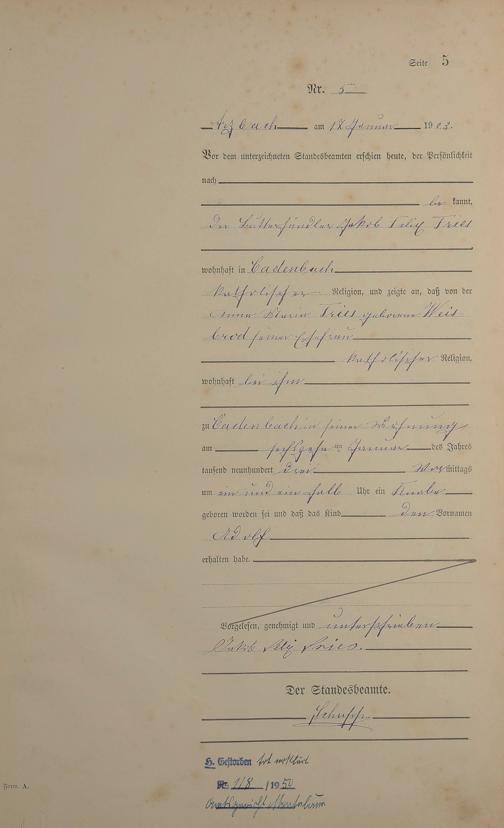 Seite 5
Nr. 5
Arzbach am 17 Januar 1903.
Vor dem unterzeichneten Standesbeamten erschien heute, der Persönlichkeit
nach
be kannt,
der Butterhändler Jakob Felix Fries
wohnhaft in Cadenbach
katholischer Religion, und zeigte an, daß von der
Anna Maria Fries geborene Weis
brod seiner Ehefrau
katholischer Religion,
wohnhaft bei ihm
zu Cadenbach in seiner Wohnung
am sechszehnten Januar des Jahres
tausend neunhundert drei Vormittags
um ein und ein halb Uhr ein Knabe
geboren worden sei und daß das Kind den Vornamen
Adolf
erhalten habe.
Vorgelesen, genehmigt und unterschrieben
Jakob Fries.
Der Standesbeamte.
H. Gestorben tot erklärt
Nr. 118 / 1950
Amtsgericht Montabaur
Form. A.